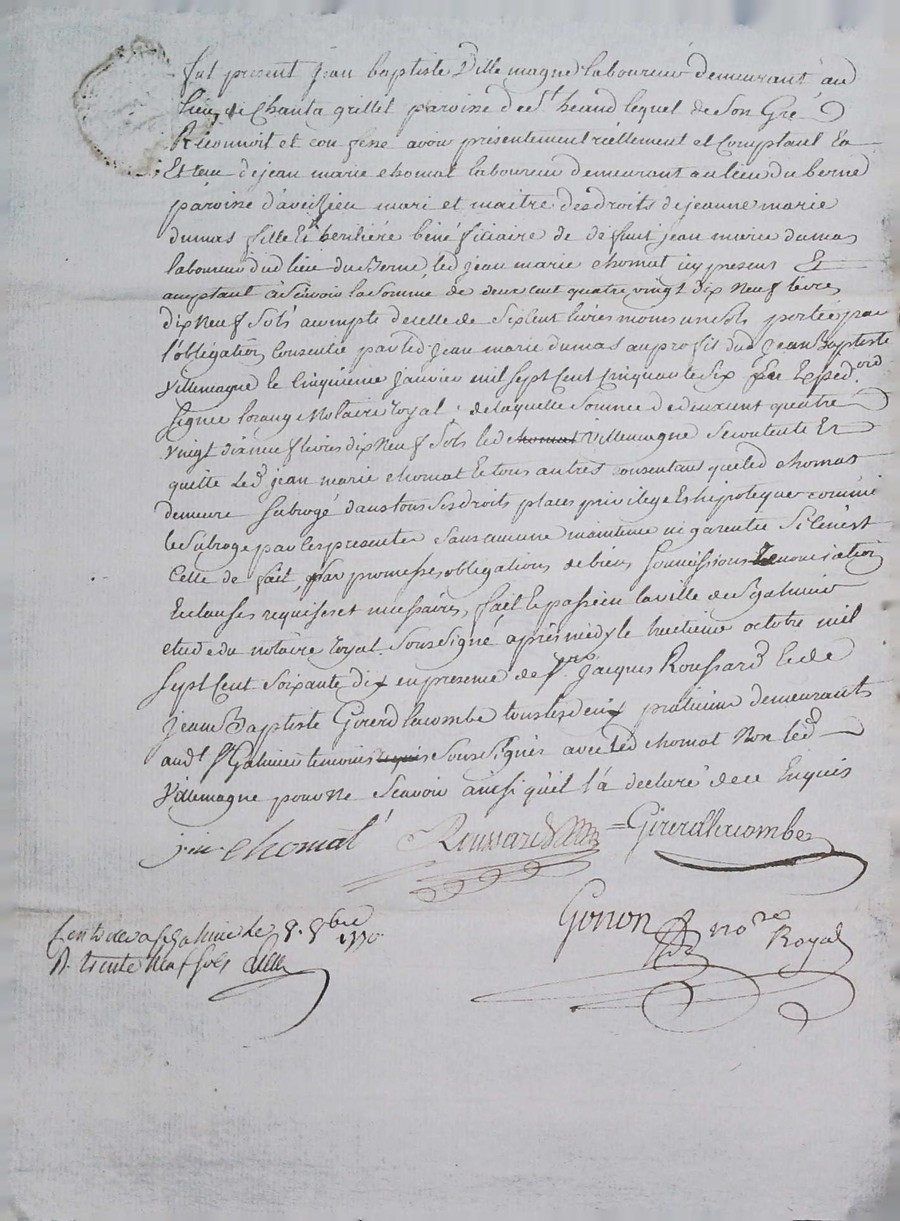 fut present jean baptiste Ville magne laboureur demeurant au
lieu de Chanta grillet paroisse de St heand lequel de Son Gré
Reconnoit et confesse avoir présentement réellement et Comptant Eu
Et reçu de jean marie chomat laboureur demeurant au lieu du berne
paroisse d'aveizieu mari et maitre des droits de jeanne marie
dumas fille Et heritière bénéficiaire de deffunt jean marie dumas
laboureur dud lieu du Berne, led jean marie chomat icy present Et
acceptant à Scavoir la Somme de deux cent quatre vingt dix Neuf livres
dix Neuf Sols acompte de celle de Six Cent livres moins un Sols portée par
l'obligation Consentie par led Jean marie dumas au profit dud Jean Baptiste
Villemagne le Cinquieme Janvier mil Sept Cent Cinquante Six
Signé Notaire royal. de laquelle Somme de deux cent quatre
vingt dix neuf livres dix Neuf Sols led chomat Villemagne Se contente Et
quitte Led jean marie chomat Et tous autres consentant que led chomat
demeure Subrogé dans tous Ses droits places privilege Et hipoteques comme il
le Subroge par les presentes Sans aucune maintenue ni garentie Si ce n'est
Celle de fait, par promesses obligations de biens Soumissions Renonciations
Et clauses requises et necessaires, fait Et passé en la ville de St galmier
etude du notaire royal Sous Signé après midy le huitieme octobre mil
Sept Cent Soixante dix en presence de Sr Jacques Roussard Et de
Jean Baptiste Girerd lacombe tous les deux praticiens demeurants
aud St Galmier temoins requis Sous Signés avec led chomat Non led
Villemagne pour Ne Scavoir ainsi qu'il l'a declaré de ce Enquis
j.m. chomat Roussard Girerd lacombe
Gonon no.re Royal
a St galmier le 8. 8bre 1770
R. trente Neuf Sols